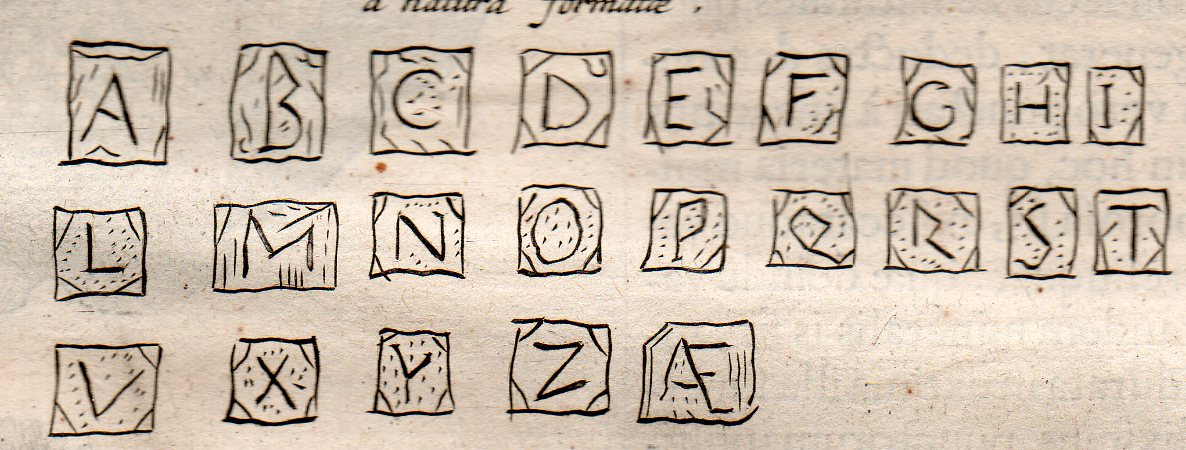 a natura formatæ .
A B C D E F G H I
L M N O P Q R S T
V X Y Z Æ